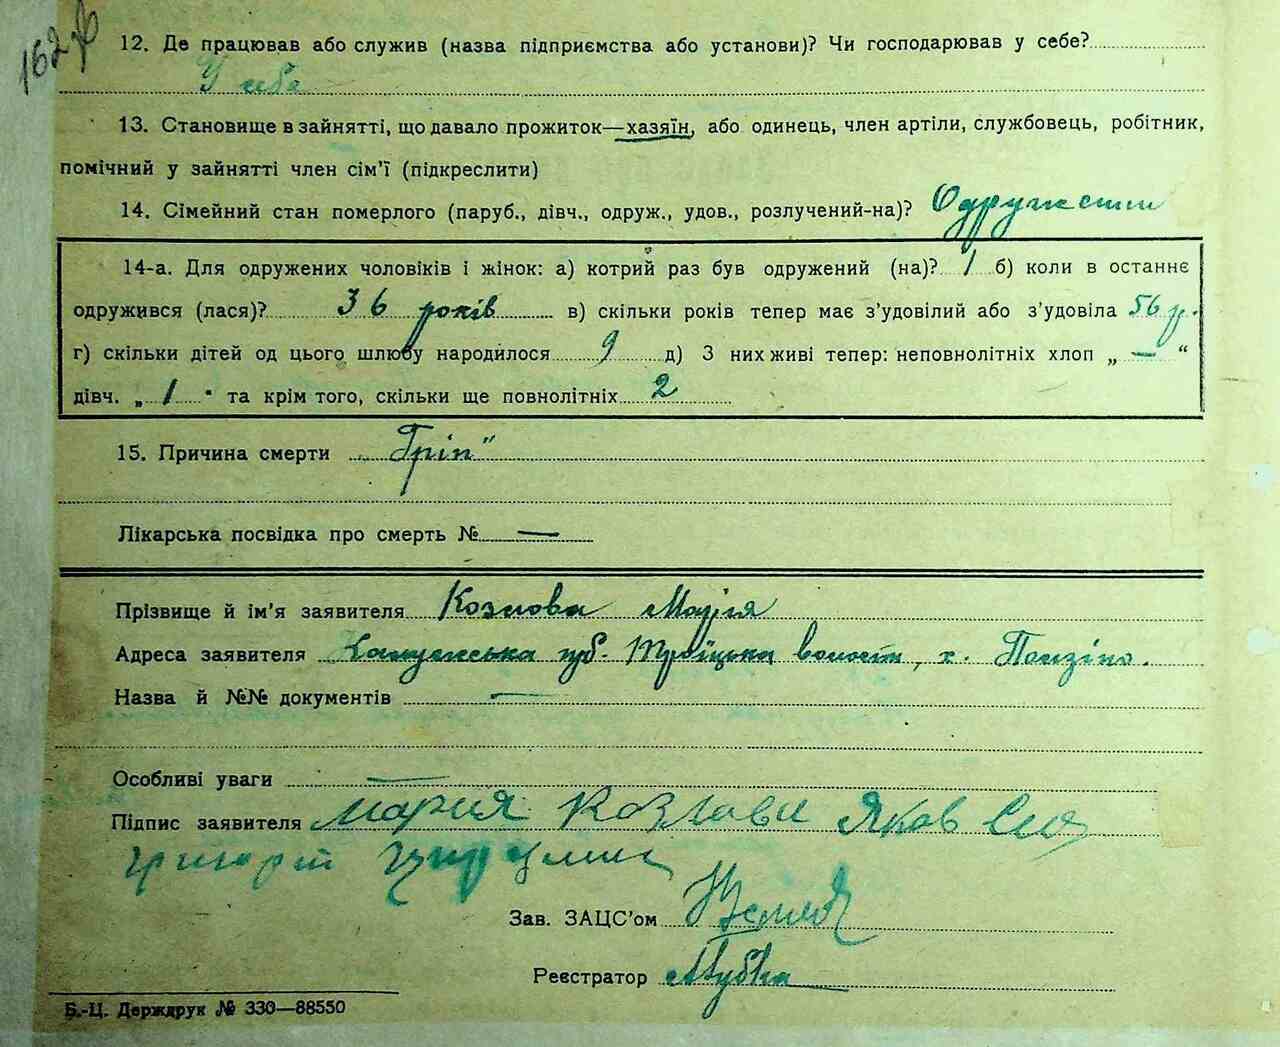 162
12. Де працював або служив (назва підприємства або установи)? Чи господарював у себе?
У себе
13. Становище в зайнятті, що давало прожиток—хазяїн, або одинець, член артіли, службовець, робітник,
помічний у зайнятті член сім'ї (підкреслити)
14. Сімейний стан померлого (паруб., дівч., одруж., удов., розлучений-на)? Одружений
14-а. Для одружених чоловіків і жінок: а) котрий раз був одружений (на)? 1 б) коли в останнє
одружився (лася)? 36 років в) скільки років тепер має з'удовілий або з'удовіла 56 р.
г) скільки дітей од цього шлюбу народилося 9 д) З них живі тепер: неповнолітніх хлоп „ — “
дівч. „ 1 " та крім того, скільки ще повнолітніх 2
15. Причина смерти „Гріп"
Лікарська посвідка про смерть № —
Прізвище й ім'я заявителя Козлова Марія
Адреса заявителя губ. Троїцька волость, х.
Назва й №№ документів —
Особливі уваги —
Підпис заявителя Мария Козлова Яков
григорій
Зав. ЗАЦС'ом
Реєстратор
Б.-Ц. Держдрук № 330—88550